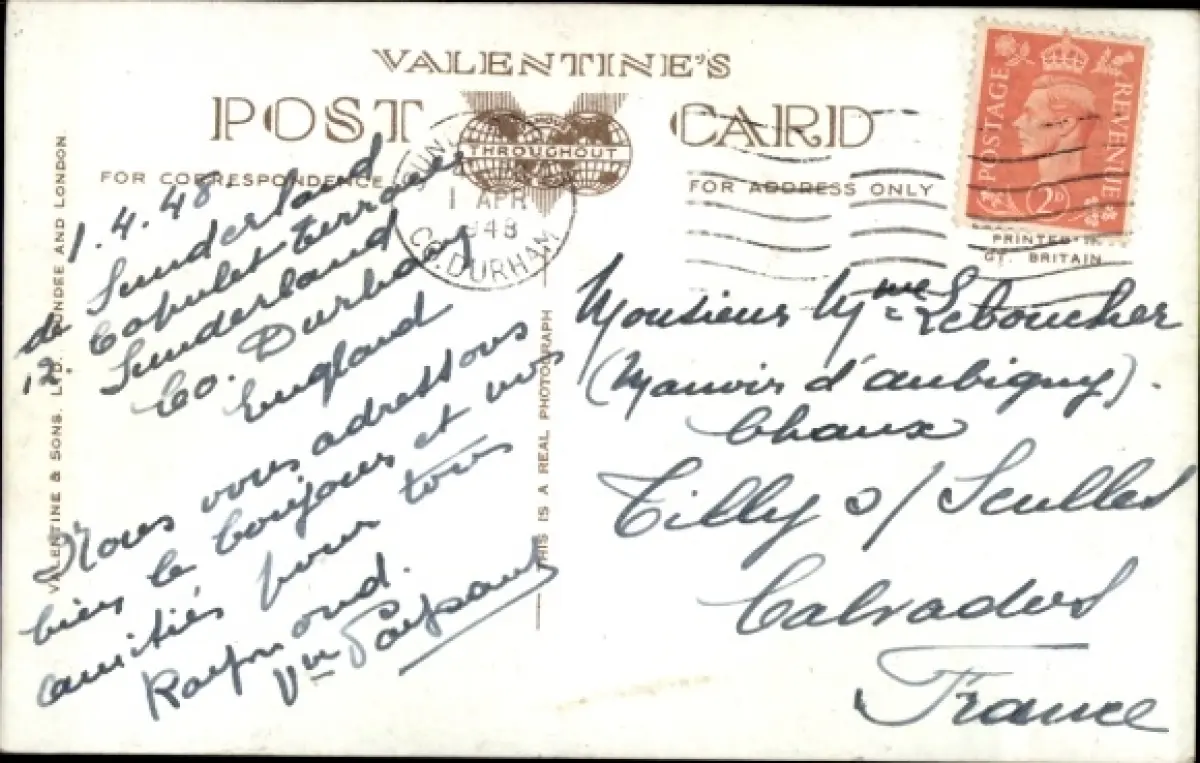 VALENTINE'S
POST CARD
THROUGHOUT
FOR CORRESPONDENCE
FOR ADDRESS ONLY
1 APR
1948
CO. DURHAM
POSTAGE
REVENUE
2D
PRINTED IN
GT. BRITAIN
VALENTINE & SONS. LTD. DUNDEE AND LONDON.
THIS IS A REAL PHOTOGRAPH
1.4.48
de Sunderland
12. Capulet terrace
Sunderland
Co. Durham
England
Nous vous adressons
bien le bonjour et nos
amitiés pour tous
Raymond.
Monsieur Mme Leboucher
(Manoir d'aubigny).
Chaux
Tilly s/ Seulles
Calvados
France